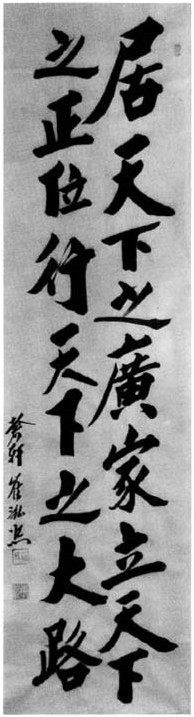 居天下之廣家立天下
之正位行天下之大路